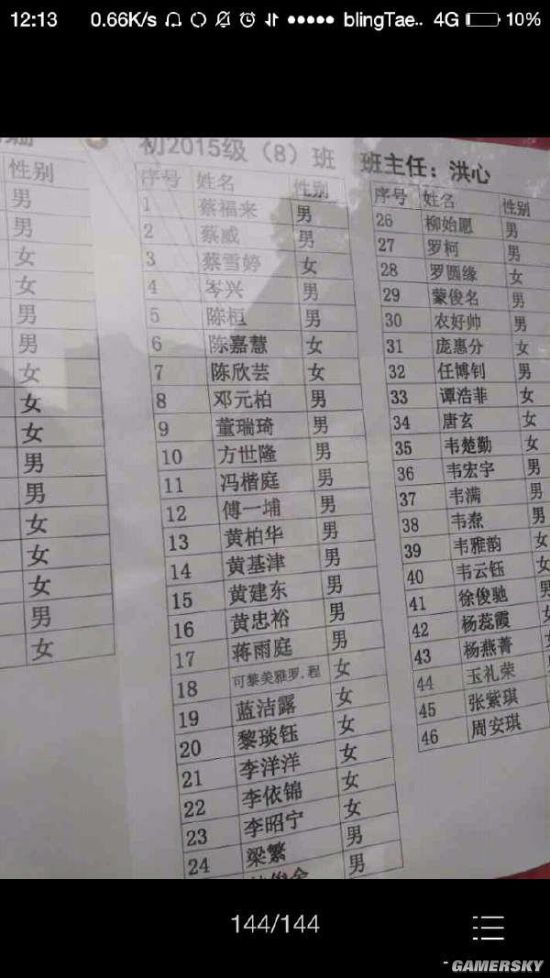 12:13 0.66K/s blingTae.. 4G 10%
初2015级（8）班 班主任：洪心
性别
男
男
女
女
男
男
女
女
女
男
男
女
女
女
男
女
序号 姓名 性别
1 蔡福来 男
2 蔡威 男
3 蔡雪婷 女
4 岑兴 男
5 陈桓 男
6 陈嘉慧 女
7 陈欣芸 女
8 邓元柏 男
9 董瑞琦 男
10 方世隆 男
11 冯楷庭 男
12 傅一埔 男
13 黄柏华 男
14 黄基津 男
15 黄建东 男
16 黄忠裕 男
17 蒋雨庭 男
18 可黎美雅罗.程 女
19 蓝洁露 女
20 黎琰钰 女
21 李洋洋 女
22 李依锦 女
23 李昭宁 女
24 梁繁 男
男
序号 姓名 性别
26 柳始愿 男
27 罗柯 男
28 罗圆缘 女
29 蒙俊名 男
30 农好帅 男
31 庞惠分 女
32 任博钊 男
33 谭浩菲 女
34 唐玄 女
35 韦楚勤 女
36 韦宏宇 男
37 韦满 男
38 韦焘 男
39 韦雅韵 女
40 韦云钰 女
41 徐俊驰 男
42 杨蕊霞 女
43 杨燕菁 女
44 玉礼荣
45 张紫琪
46 周安琪
144/144
GAMERSKY